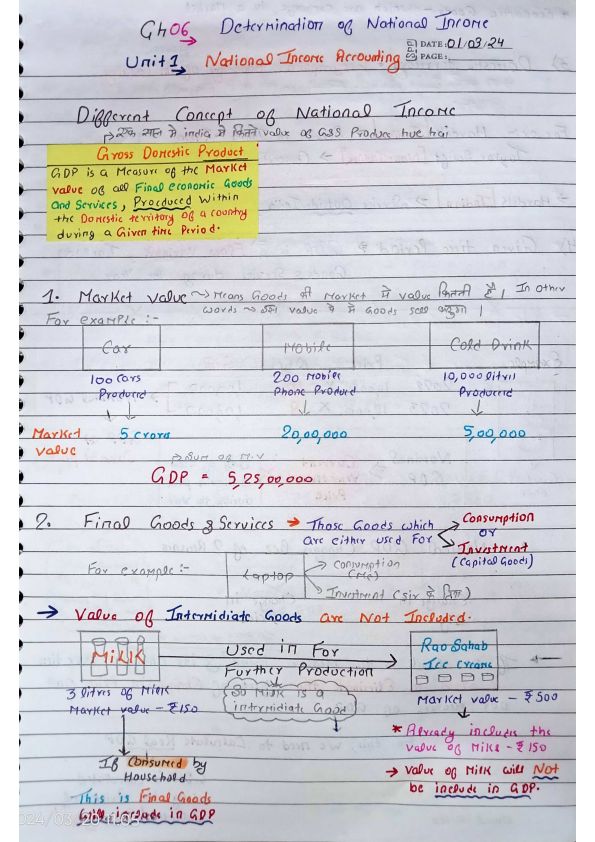 Ch06 Determination of National Income
Unit 1 National Income Accounting
DATE: 01/03/24
PAGE:
Different Concept of National Income
एक साल में india में कितने value of G&S Produce hue hai
Gross Domestic Product
GDP is a Measure of the Market
value of all Final economic Goods
and Services, Procduced Within
the Domestic territory of a country
during a Given time Period.
1. Market value Means Goods की Market में value कितनी है। In other
words value पे मे Goods sell
For example :-
Car
Mobile
Cold Drink
100 Cars
Produced
200 Mobiles
Phone Produced
10,000 litres
Produced
Market
value
5 crors
20,00,000
5,00,000
Sum of M.V
GDP = 5,25,00,000
2. Final Goods & Services → Those Goods which
are either used For
Consumption
or
Investment
(Capital Goods)
For example :-
Laptop
Consumption
(Me)
Investment (sir के लिए)
→ Value of Intermidiate Goods are Not Included.
MILK
Used in For
Further Production
Rao Sahab
Ice cream
3 litres of Milk
Market value - ₹150
So Milk is a
intermidiate Good
Market value - ₹500
* Already includes the
value of Milk - ₹150
→ value of Milk will Not
be include in GDP.
If Consumed by
Household
This is Final Goods
Will include in GDP